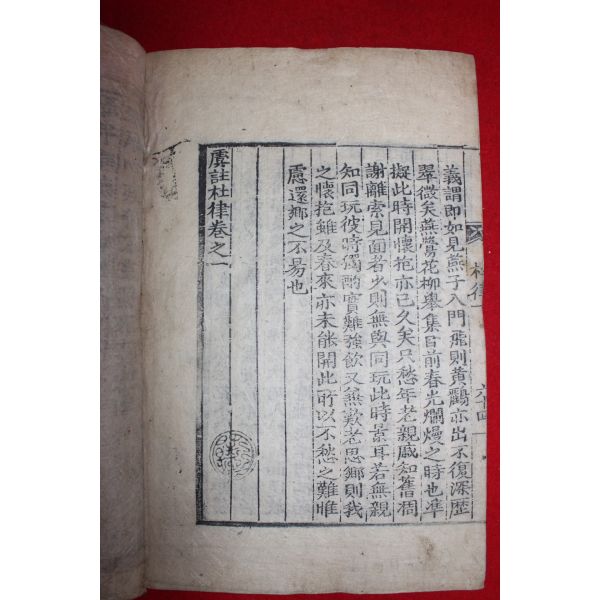 杜律一
六十四
義謂即如見燕子入門飛則黃鸝亦出不復深歷
翠微矣燕鶯花柳舉集目前春光爛熳之時也準
擬此時開懷抱亦已久矣只愁年老親戚知舊凋
謝離索見面者少則無與同玩此時景耳若無親
知同玩彼時獨酌實難強飲又無歎老思鄉則我
之懷抱雖及春來亦未能開此所以不愁之難唯
慮還鄉之不易也
虞註杜律卷之一